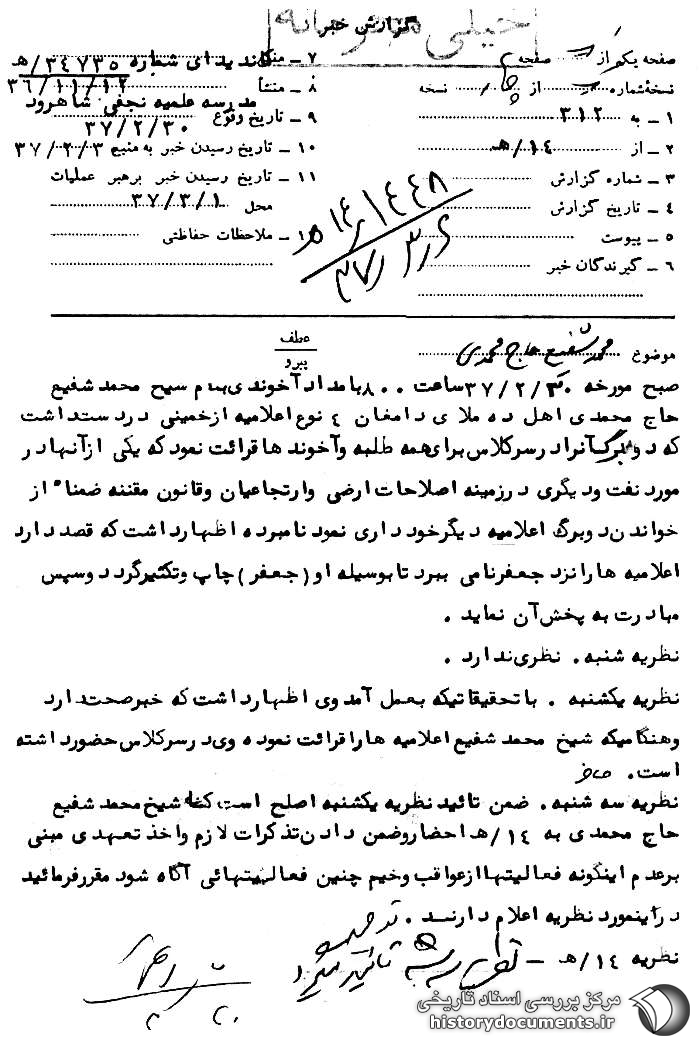 خیلی محرمانه
گزارش خبر
صفحه یک از صفحه
نسخه شماره از چهار نسخه
۱ ـ به ۳۱۲
۲ ـ از ۱۴/ هـ
۳ ـ شماره گزارش
۴ ـ تاریخ گزارش
۵ ـ پیوست
۶ ـ گیرندگان خبر
۷ ـ منبع کاندیدای شماره ۳۴۷۳۵/ هـ
۳۶/۱۱/۱۲
۸ ـ منشأ
مدرسه علمیه نجفی شاهرود
۹ ـ تاریخ وقوع ۳۷/۲/۳۰
۱۰ ـ تاریخ رسیدن خبر به منبع ۳۷/۲/۳
۱۱ ـ تاریخ رسیدن خبر برهبر عملیات
محل ۳۷/۳/۱
۱۲ ـ ملاحظات حفاظتی
۱۴۴۸/۱۴ هـ
۳۷/۳/۶
عطف
پیرو
موضوع محمد شفیع حاج محمدی
صبح مورخه ۳۷/۲/۳۰ ساعت ۸۰۰ بامداد آخوندی بنام سیح محمد شفیع
حاج محمدی اهل ده ملا ی دامغان ٤ نوع اعلامیه ازخمینی دردست داشت
که دو برگ آنرا درسرکلاس برای همه طلبه وآخوند ها قرائت نمود که یکی ازآنها در
مورد نفت ودیگری درزمینه اصلاحات ارضی وارتجاعیان وقانون مقننه ضمنا" از
خواندن دوبرگ اعلامیه دیگرخود داری نمود نامبرده اظهارداشت که قصد دارد
اعلامیه هارا نزد جعفرنامی ببرد تا بوسیله او (جعفر) چاپ وتکثیرگردد وسپس
مبادرت به پخش آن نماید .
نظریه شنبه . نظری ندارد .
نظریه یکشنبه . با تحقیقاتیکه بعمل آمد وی اظهارداشت که خبرصحت دارد
وهنگامیکه شیخ محمد شفیع اعلامیه هارا قرائت نموده وی درسرکلاس حضورداشته
است .
نظریه سه شنبه . ضمن تائید نظریه یکشنبه اصلح است که شیخ محمد شفیع
حاج محمدی به ۱۴/ هـ احضار وضمن دادن تذکرات لازم واخذ تعهدی مبنی
برعدم اینگونه فعالیتها ازعواقب وخیم چنین فعالیتهائی آگاه شود مقررفرمائید
دراینمورد نظریه اعلام دارند .
نظریه ۱۴/ هـ ـ نظریه سه شنبه تائید میگردد
مرکز بررسی اسناد تاریخی
historydocuments.ir